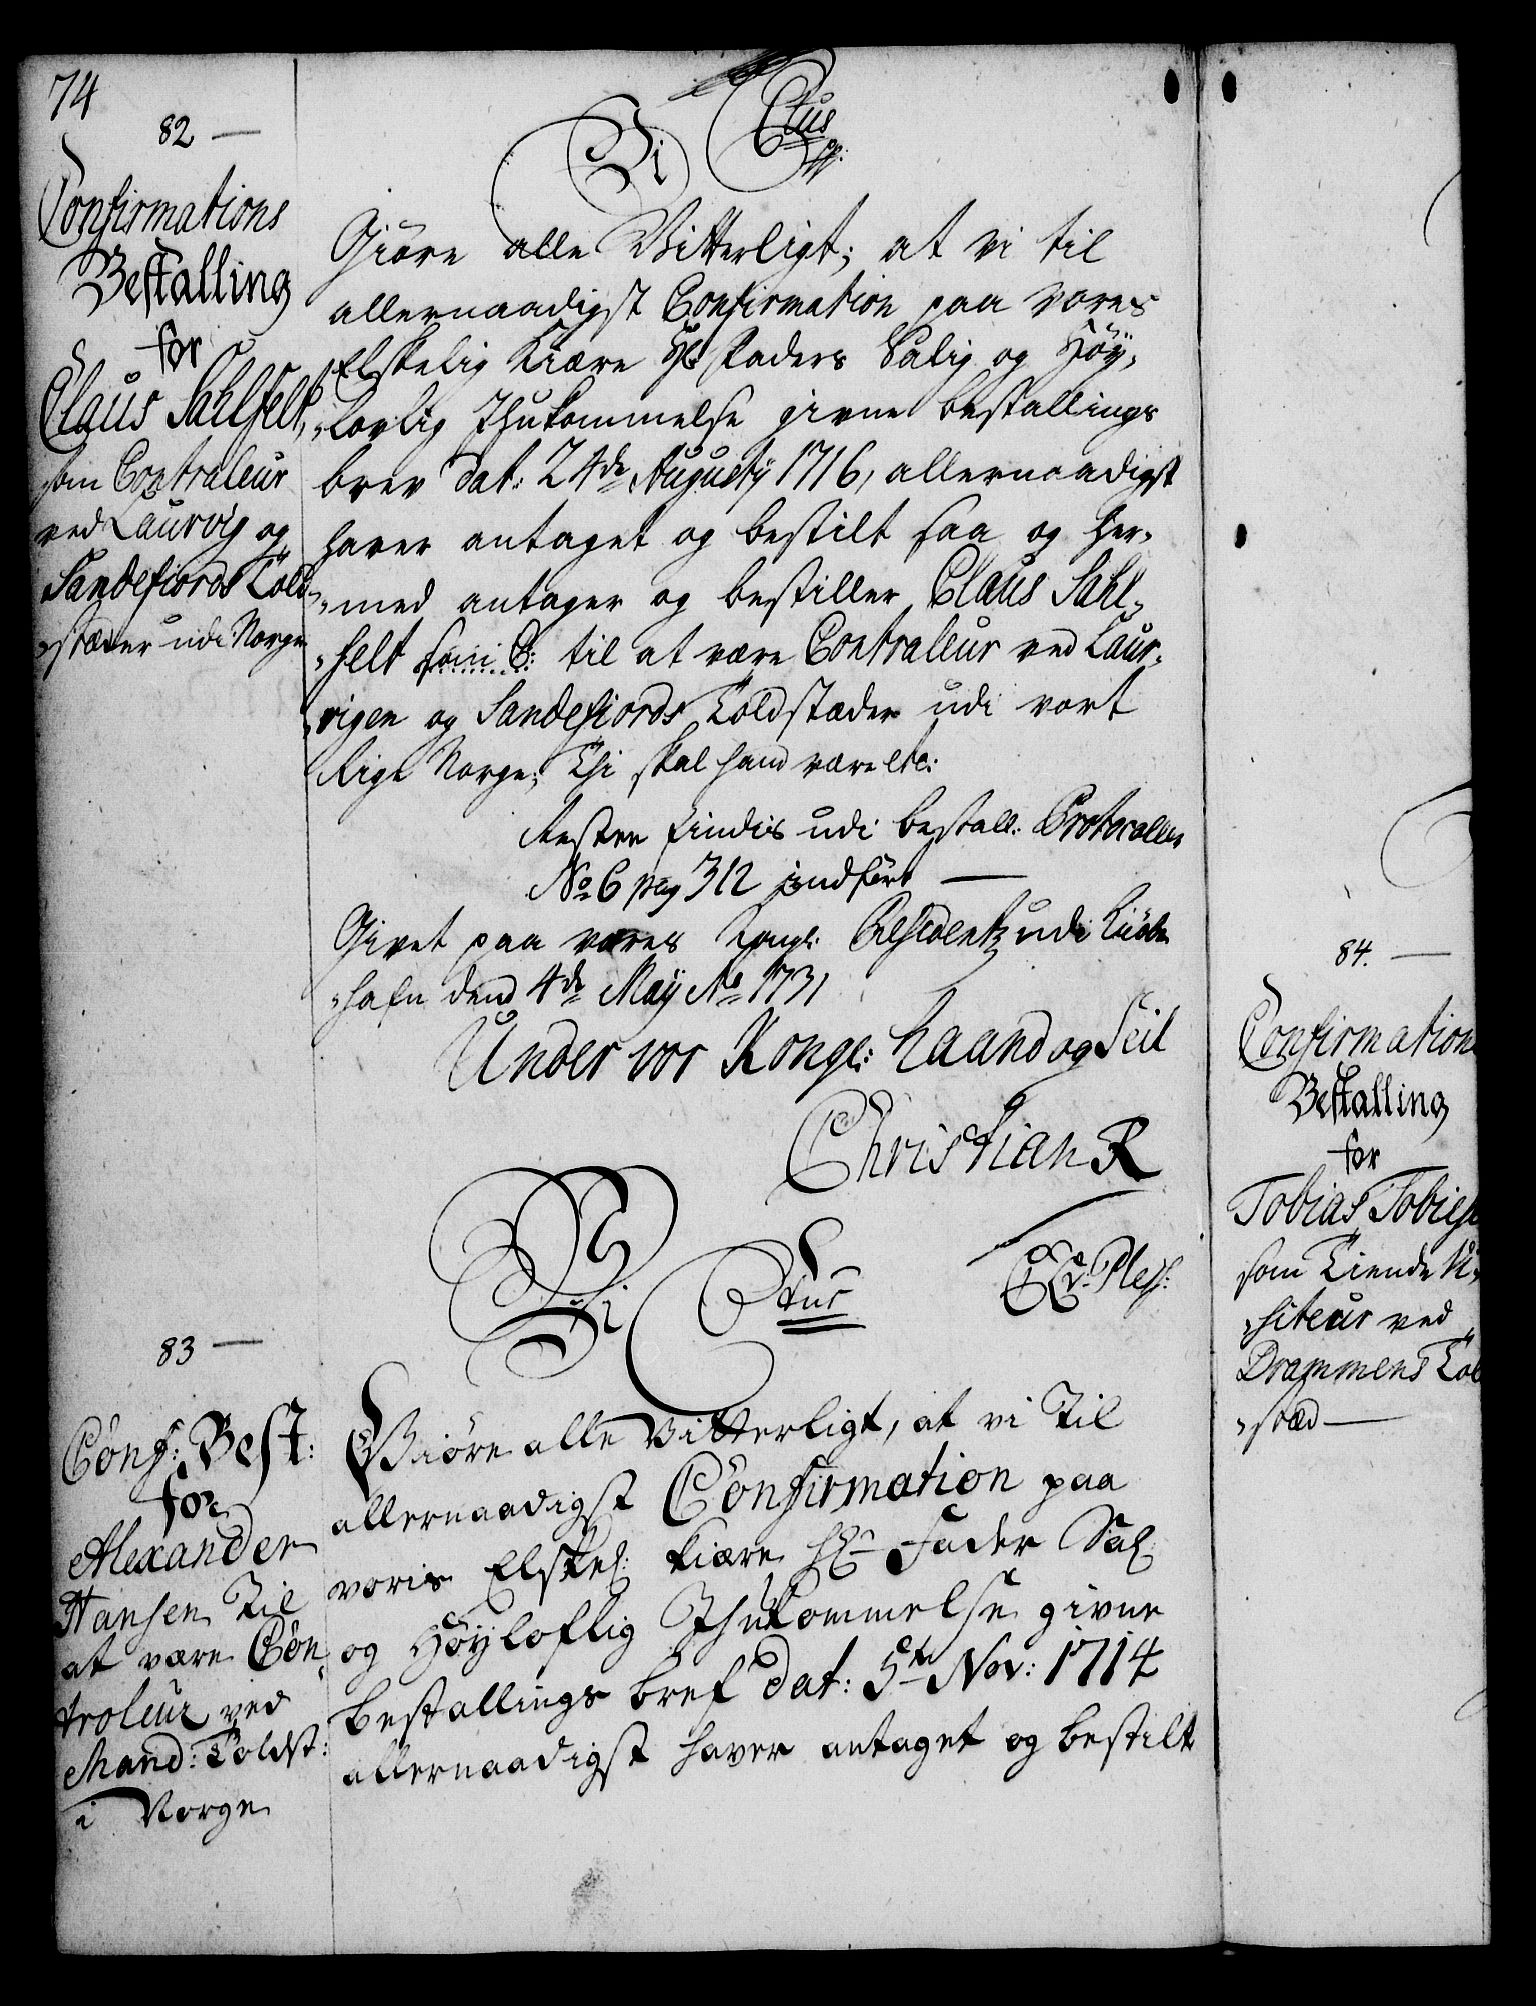 74
82 —
Confirmations
Bestalling
for
Claus Sahlfelt,
som Contraleur
ved Laurvig og
Sandefiords Told„
„stæder udi Norge
Vi Ctus
Giöre alle Vitterligt; at vi til
allernaadigst Confirmation paa vores
Elskelig Kiære Hr Faders Salig og Höy„
„lovlig Ihukommelse givne bestallings
brev dat: 24de Augustij 1716, allernaadigst
haver antaget og bestilt saa og her„
„med antager og bestiller Claus Sahl„
„felt som C: til at være Contraleur ved Laur„
„vigen og Sandefiords Toldstæder udi vort
Rige Norge; Thi skal hand være etc:
Resten findis udi bestall: Protocollen
No 6 pag 312 indført —
Givet paa vores Kongl: Residentz udi Kiöben
„hafn dend 4de Maij Ao 1731
Under vor Kongl: haand og Seil
Christian R
CA v: Pless:
83 —
Conf: Best:
for
Alexander
Hansen Til
at være Con„
troleur ved
Mand: Toldst:
i Norge
Vi Ctus
Giöre alle Vitterligt, at vi Til
allernaadigst Confirmation paa
voris Elskel: kiære Hr Fader Sal:
og Höyloflig Ihukommelse givne
bestallings bref dat: 5t Nov: 1714
allernaadigst haver antaget og bestilt
84. —
Confirmation
Bestalling
for
Tobias Tobies
som Tiende Vi„
„siteur ved
Drammens Tol
„stæd —